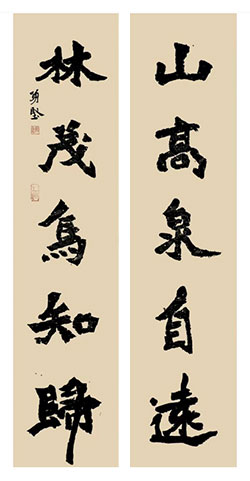 山高泉自遠
林茂鳥知歸